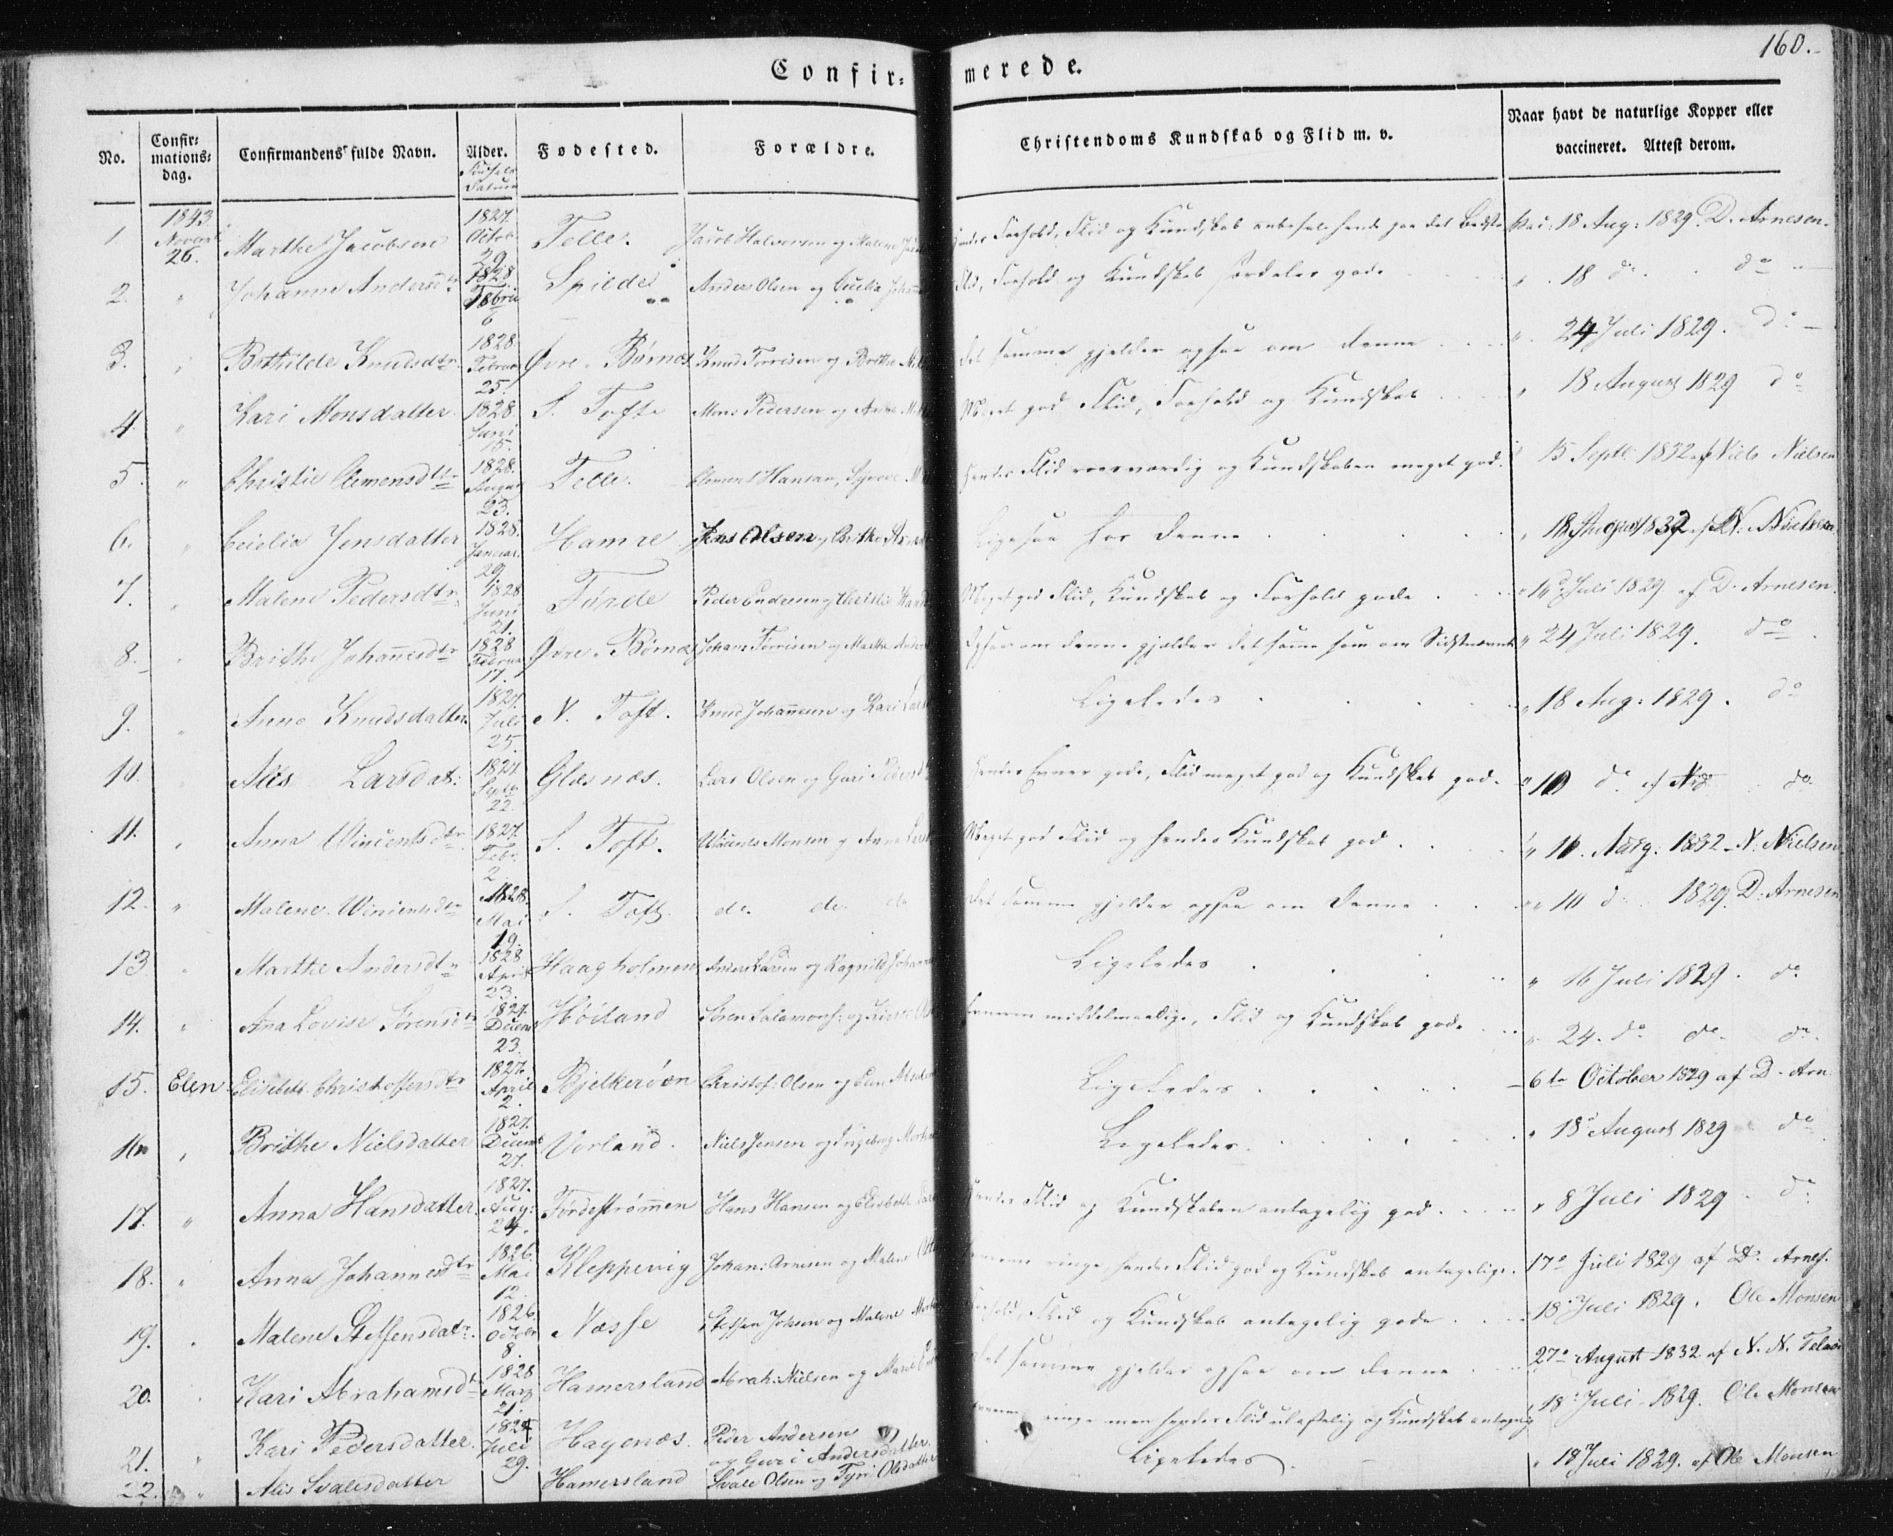 160.
Confir: merede.
No. Confir: mations: dag. Confirmandens fulde Navn. Alder. Fødested. Forældre. Christendoms Kundskab og Flid m. v. Naar havt de naturlige Kopper eller vaccineret. Attest derom.
1. 1843 Novembr 26. Marthe Jacobsdtr 1827. Octob. 29. Telle. Jacob Halvorsen og Malene Forhold, Flid og Kundskab anbefale hende paa det Bedste 18 Aug: 1829. D. Arnesen.
2. " Johanne Andersdtr 1828. Febru 6 Spilde Anders Olsen og Cicilie Flid, Forhold og Kundskab særdeles gode " 18 do. do
3. " Bothilde Knudsdtr 1828. Februar 25. Øvre Børnæs Knud Torrisen og Brithe det samme gjelder ogsaa om denne " 24 Juli 1829. do
4. " Kari Monsdatter 1828. Juni 15. S. Tofte Mons Pedersen og Anne Meget god Flid, Forhold og Kundskab " 18 August 1829 do
5. " Christie Clemensdtr 1828. August 23. Telle. Clement Hansen, Synneve hendes Flid roesværdig og Kundskaben meget god. 15 Septbr 1832 af Niels Nielsen
6. " Ceielia Jensdatter 1828. Januar. 29. Hamre Jens Olsen og Brithe Ligesaa for denne " 18 August 1832 af N. Nielsen
7. " Malene Pedersdtr 1828 Juni 21. Førde Peder Endresen og Christie Meget god Flid, Kundskab og Forhold gode " 16 Juli 1829 af D. Arnesen.
8. " Brithe Johannesdtr 1828 Februar 17. Øvre Børnæs Johans Torrisen og Marthe Ogsaa om denne gjelder det samme som om Sidstnævnte " 24 Juli 1829. do
9. " Anne Knudsdatter 1827. Juli 25. N. Toft. Knud Johannesen og Kari Ligeledes " 18 Aug: 1829. do
10. " Alis Larsdat: 1827. Septb 22. Glæsnæs. Lars Olsen og Guri hendes Evner gode, Flid meget god og Kundskab god. " 10 do af do
11. " Anna Vincentsdtr 1827. Febr. 2. S. Toft. Vincents Monsen og Anne Meget god Flid og hendes Kundskab god " 10. Aug. 1832 N. Nielsen
12. " Malene Vincentsdtr 1828. Mai 19. S. Toft. do. do. do det samme gjelder ogsaa om denne " 10 do 1829. D. Arnesen
13. " Marthe Andersdtr 1828 April 23. Haagholmen Anders Larsen og Ragnild Ligeledes " 16 Juli 1829. do
14. " Ana Lovise Sørensdtr 1827. Decemb 23. Høiland Søren Salamons: og middelmaadige, Flid og Kundskab gode " 24. do do do.
15. Elen Elisebeth Christoffersdtr 1827. April 2. Bjelkerøen Christof: Olsen og Ligeledes 6te October 1829 af D. Arn.
16 " Brithe Nielsdatter 1827. Decemb 27. Vorland. Niels Jensen og Ingeborg Ligeledes. " 18 August 1829 do
17. " Anna Hansdatter 1827. Aug: 24. Førdestrømen Hans Hansen og Elisabeth hendes Flid og Kundskaben antagelig god. " 8 Juli 1829 do
18. " Anna Johannesdtr 1826. Mai 12. Kleppevig Johan: Arnesen og Malene ringe, hendes Flid god og Kundskab antagelige. 17de Juli 1829 af D. Arnes.
19. " Malene Steffensdatr. 1826. October 8. Næsse Steffen Johsen og Malene Forhold, Flid og Kundskab antagelig gode 18 Juli 1829. Ole Monsen
20. " Kari Abrahamsdtr 1828 Marz 21. Hamersland Abrah: Nielsen og det samme gjelder ogsaa om denne 27de August 1832 af N. N.
21. " Kari Pedersdatter. Juli 29. Hagenæs. Peder Andersen og Guri Andersdatter. ringe men hendes Flid og Kundskab antagelig 18 Juli 1829. Ole Monsen
22. " Alis Svalesdatter Hamersland Svale Olsen og Tyri Olsdatter Ligeledes. " 18 Juli 1829. af Ole Monsen